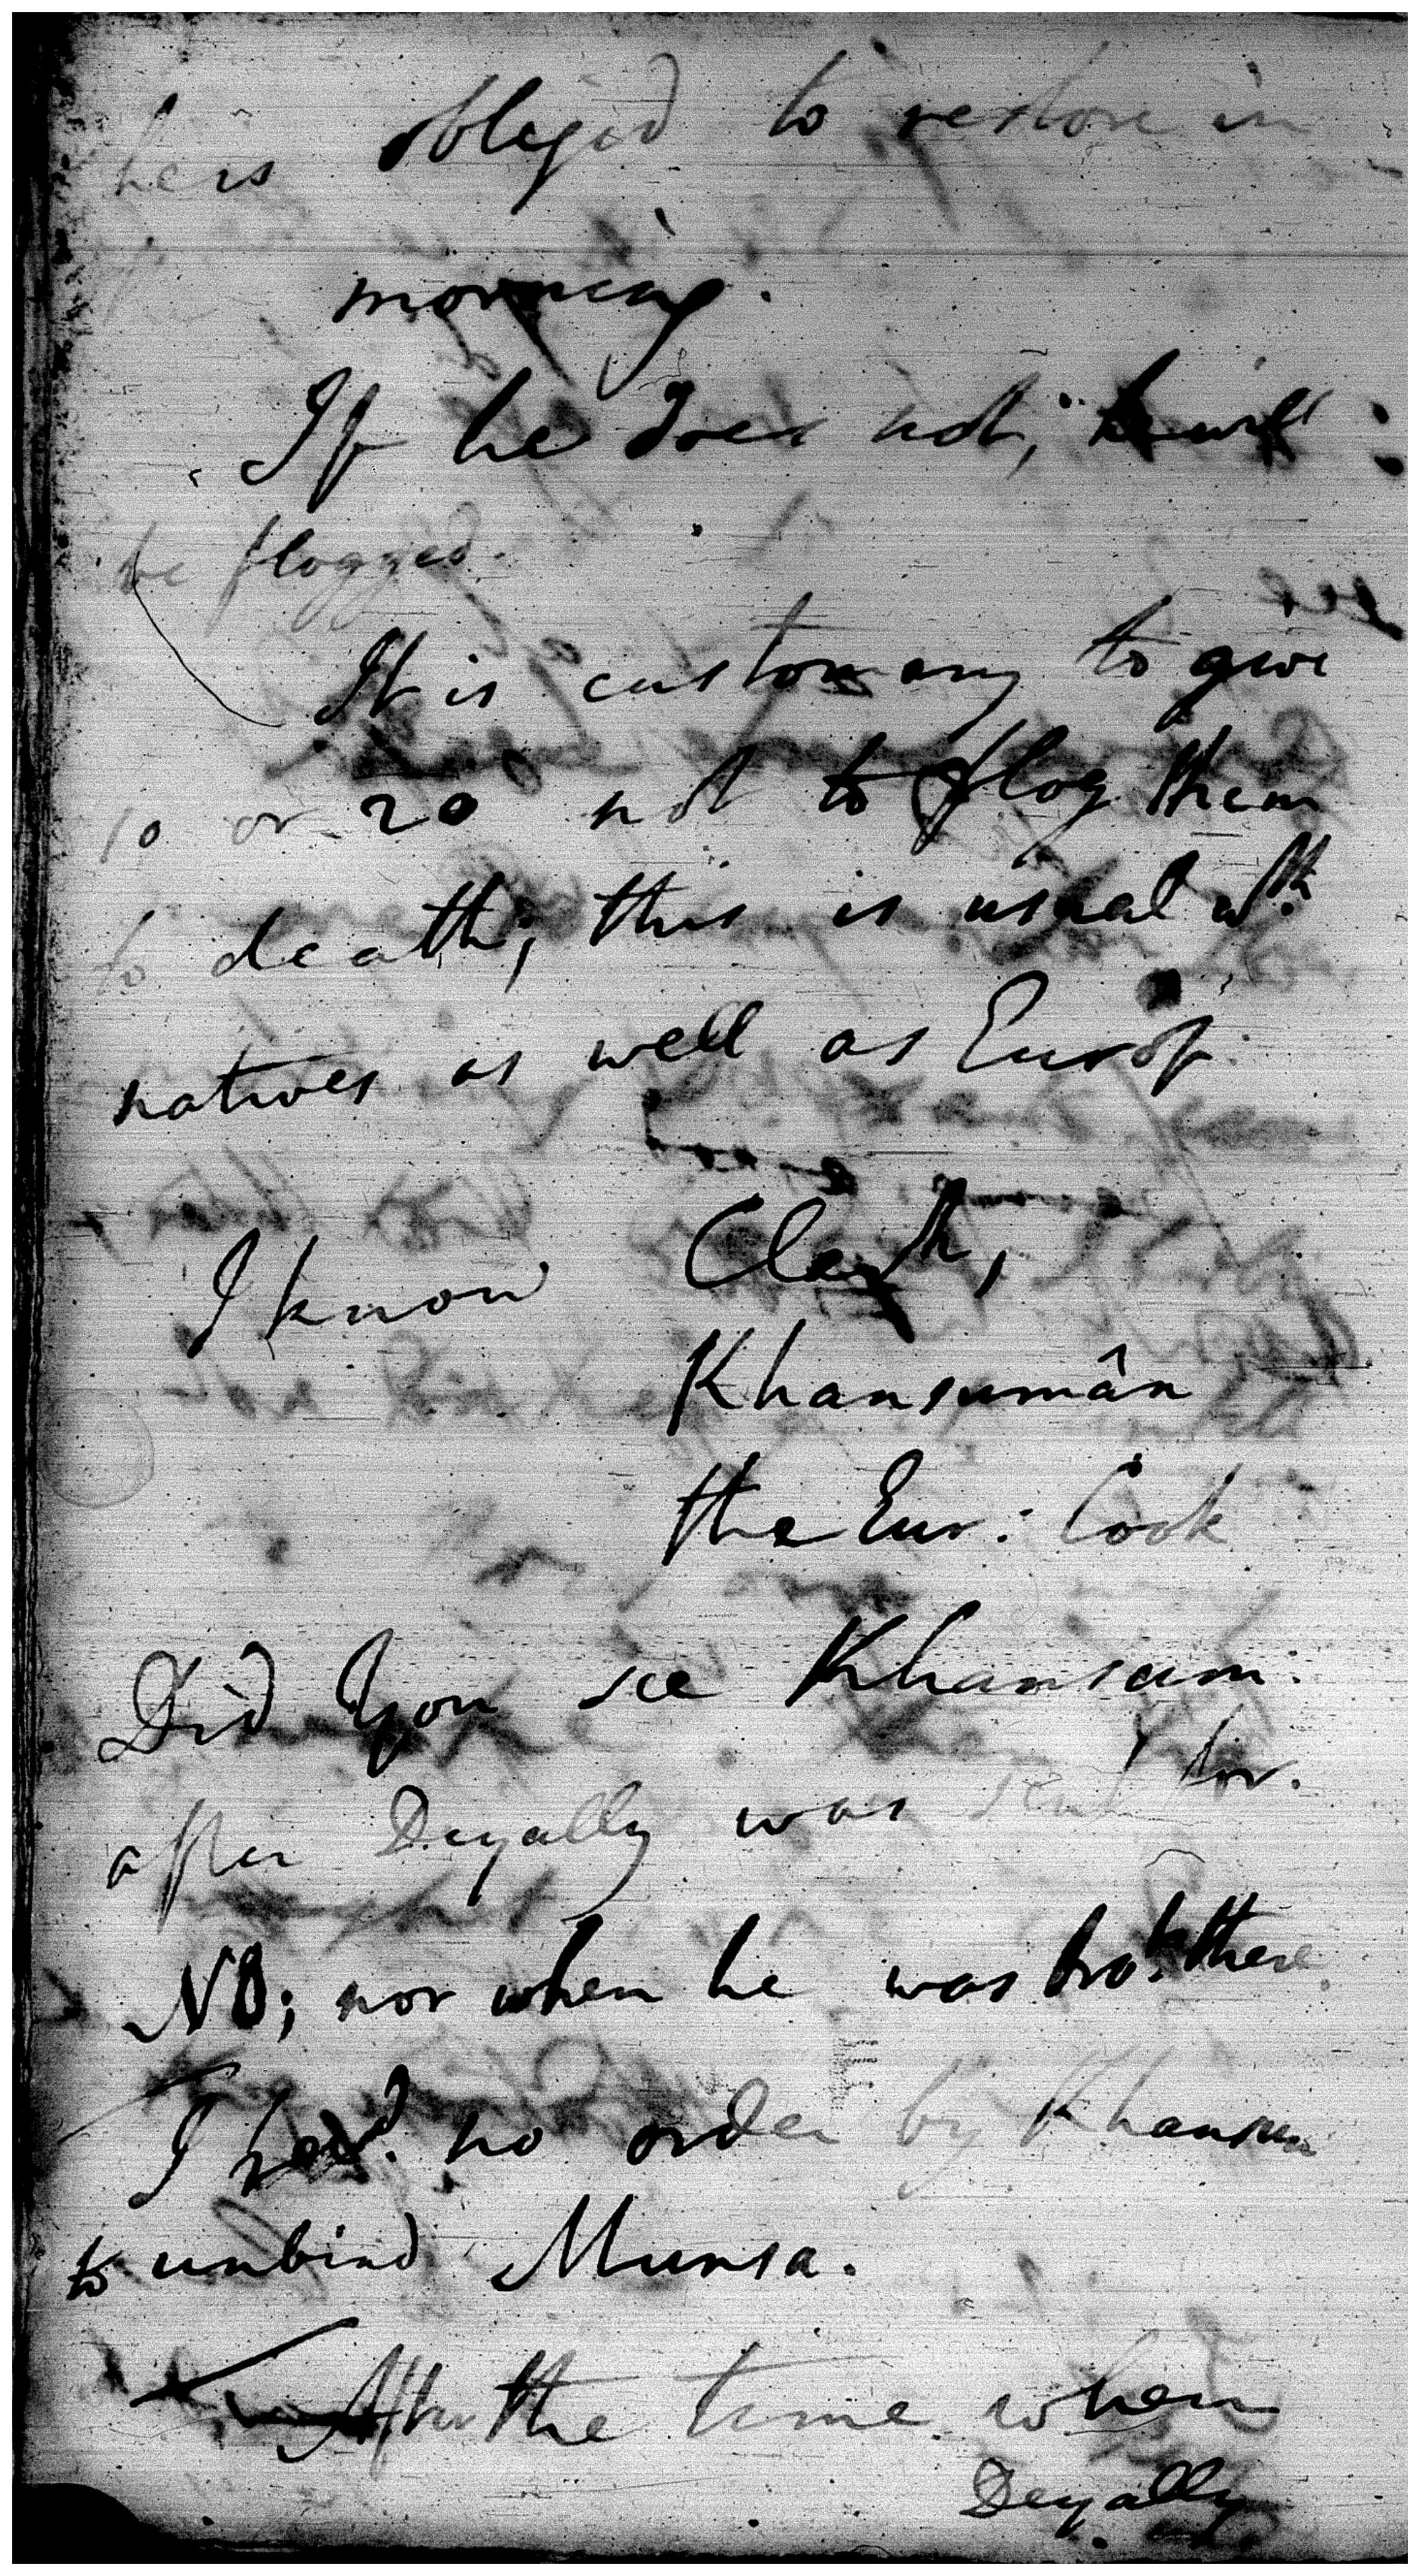 he is obleged to restore in
the
morning.
If he does not, he will
be flogged.
It is customary to give
10 or 20 not to flog them
to death; this is usual wth
natives as well as Europ:
I know
Khansumân
the Eur: Cook
Did you see Khansum:
after Deyally was sent for.
No; nor when he was brot. there
I heard no order by Khansum
to unbind Munsa.
After the time when
Deyally